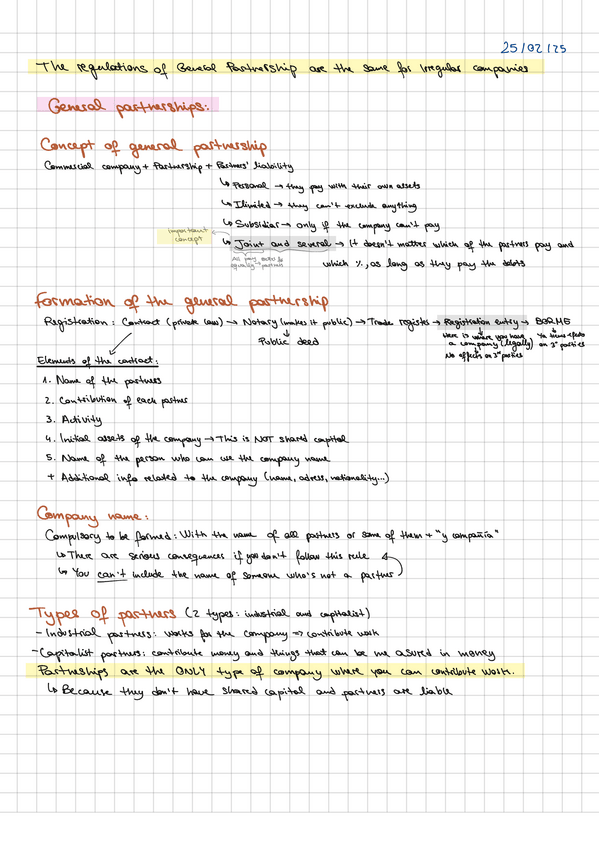 25/02/25
The regulations of General Partnership are the same for Irregular companies
General partnerships:
Concept of general partnership
Commercial company + Partnership + Partners' liability
↳ Personal → they pay with their own assets
↳ Ilimited → they can't exclude anything
↳ Subsidiar → only if the company can't pay
Important concept
↳ Joint and several → It doesn't matter which of the partners pay and
which %, as long as they pay the debts
All pay
equality
partners
Formation of the general partnership
Registration: Contract (private law) → Notary (makes it public) → Trade register → Registration entry → BORME
Public deed
Here is where you have a company (legally)
No effects on 3rd parties
on 3rd parties
Elements of the contract:
1. Name of the partners
2. Contribution of each partner
3. Activity
4. Initial assets of the company → This is NOT shared capital
5. Name of the person who can use the company name
+ Additional info related to the company (name, adress, nationality...)
Company name:
Compulsory to be formed: With the name of all partners or some of them + "y compañía"
↳ There are serious consequences if you don't follow this rule
↳ You can't include the name of someone who's not a partner
Types of partners (2 types: industrial and capitalist)
- Industrial partners: works for the company => contribute work
- Capitalist partners: contribute money and things that can be measured in money
Partneships are the ONLY type of company where you can contribute work.
↳ Because they don't have shared capital and partners are liable